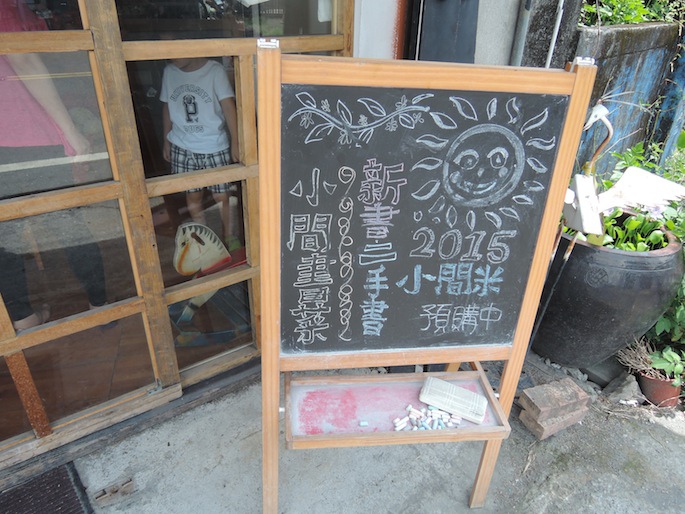 2015
小間米
預購中
新書二手書
小間書菜